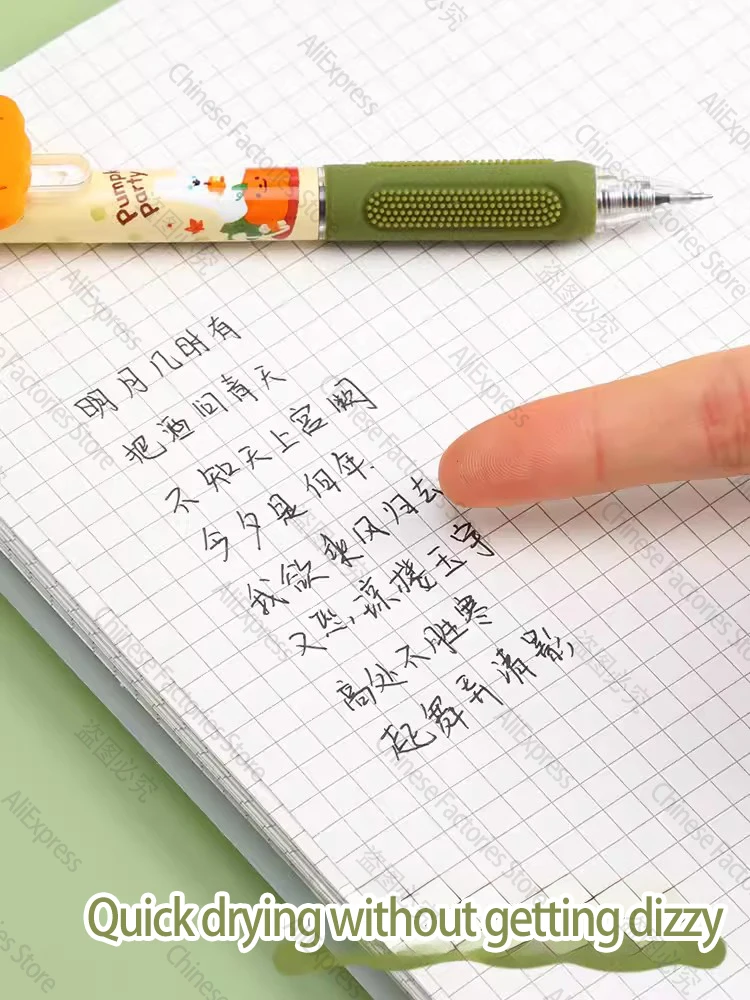 Pumpkin
Party
明月几时有
把酒问青天
不知天上宫阙
今夕是何年.
我欲乘风归去
又恐琼楼玉宇
高处不胜寒
起舞弄清影
Quick drying without getting dizzy
AliExpress
Chinese Factories Store
盗图必究